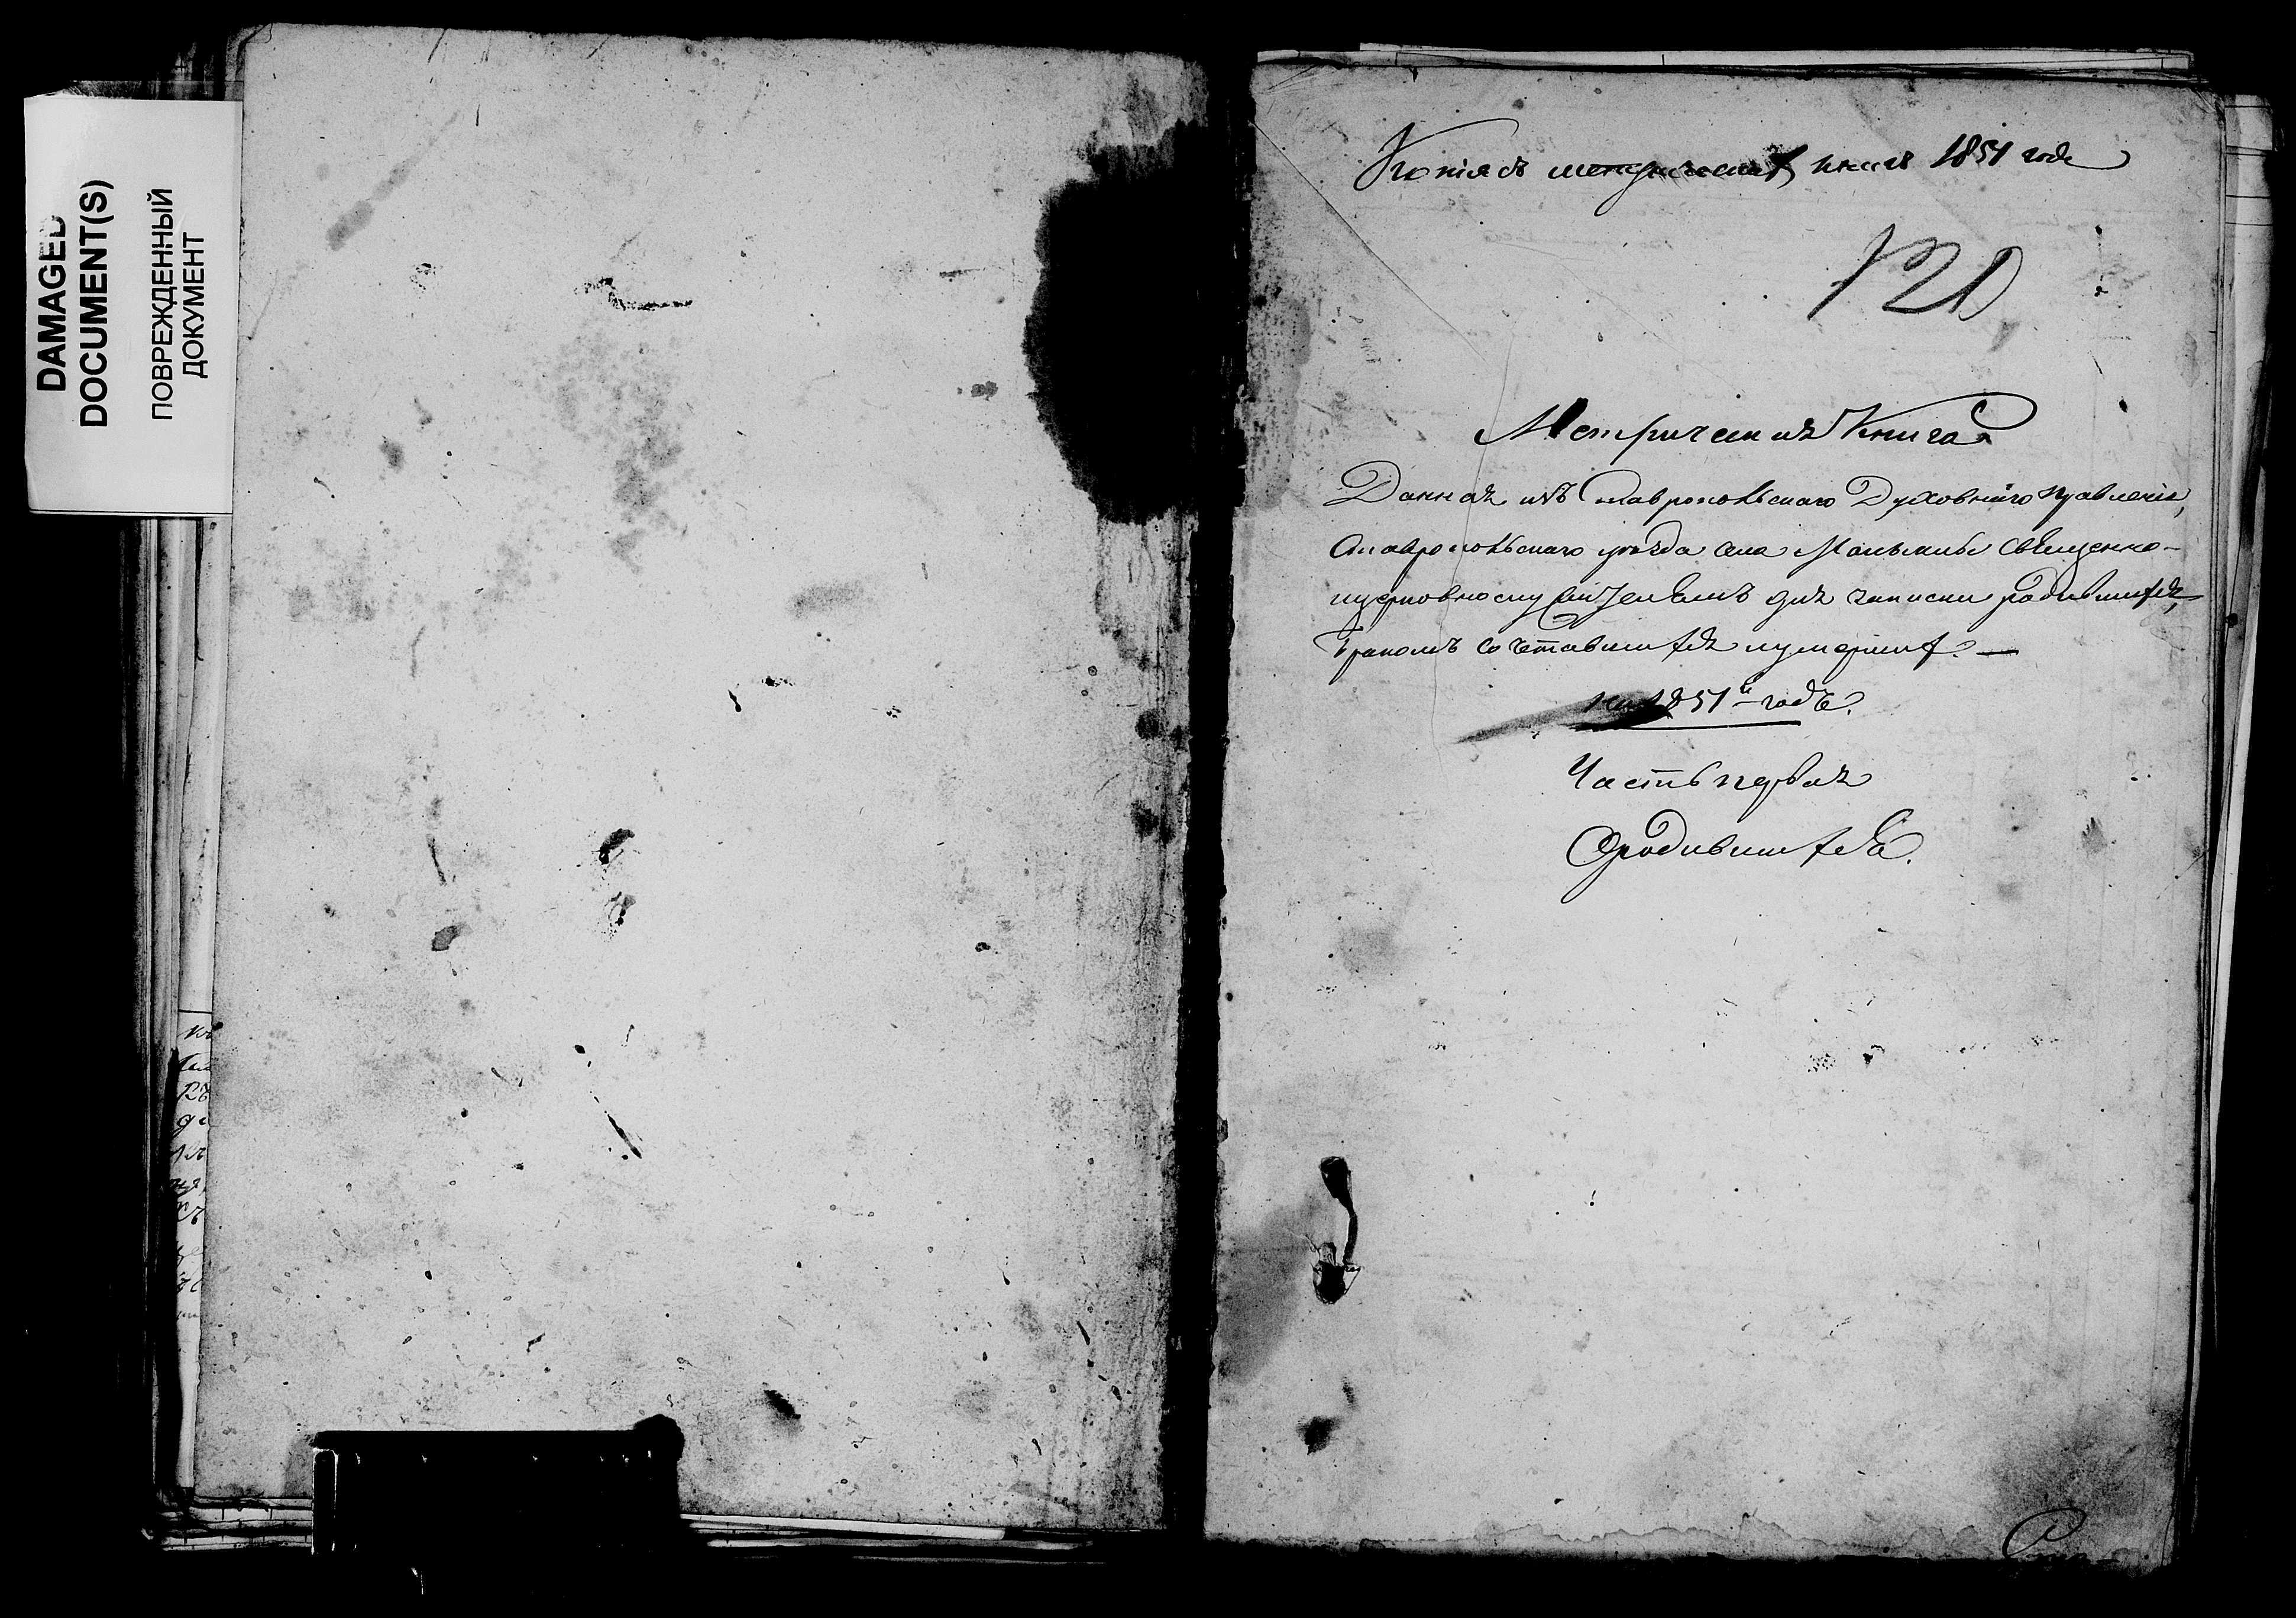 DAMAGED
DOCUMENT(S)
ПОВРЕЖДЕННЫЙ
ДОКУМЕНТ
Копія съ метрическихъ книгъ 1851 года
120
Метрическая Книга
Данная изъ Ставропольскаго Духовнаго правленія,
Ставропольскаго уѣзда села священно-
церковнослужителямъ для записки родившихся,
бракомъ сочетавшихся и умершихъ. —
на 1851й годъ.
Часть первая
О родившихся.